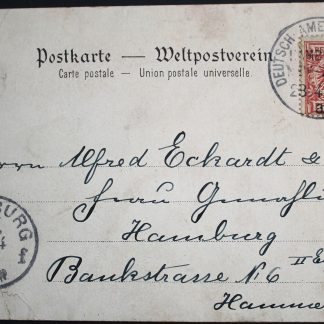 Postkarte — Weltpostverein
Carte postale - Union postale universelle.
DEUTSCH-AME
23
Alfred Eckardt &
Frau Gemahlin
Hamburg
Bankstrasse No 6 II E
Hamme
BURG
1